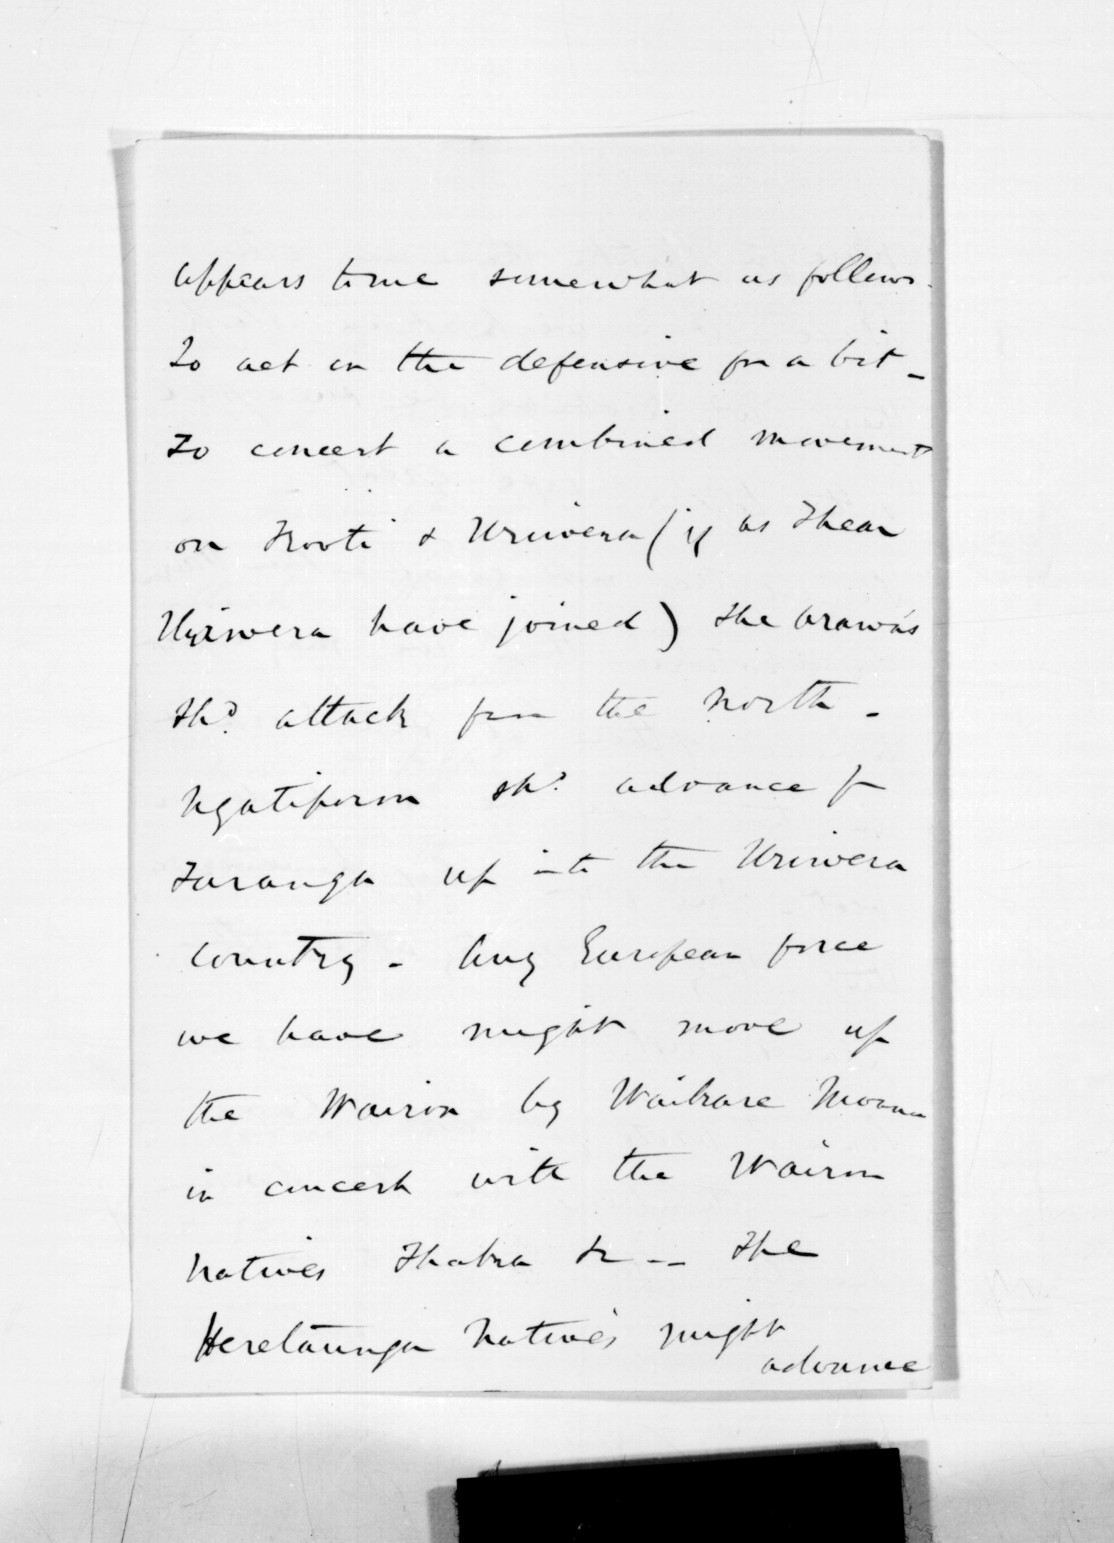 appears to me somewhat as follows.
To act on the defensive for a bit -
To concert a combined movement
on Kooti & Uriwera (if as I hear
Uriwera have joined) the Arawas
shd. attack from the north -
Ngatiporou shd. advance fm
Turanga up into the Uriwera
country - Any European force
we have might move up
the Wairoa by Waikare Moana
in concert with the Wairoa
Natives Ihaka &c -- The
Heretaunga Natives might
advance